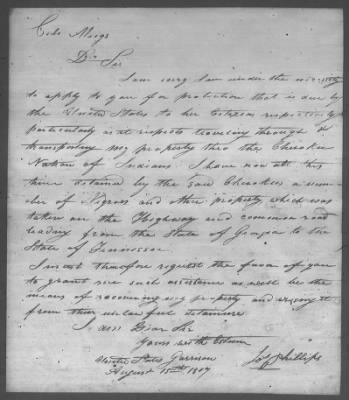 Colo. Meigs
Dr. Sir
I am sorry I am under the necessity
to apply to you for protection that is due by
the United States to her Citizens respectively
particularly as it respects traveling through &
transporting my property thro the Cherokee
Nation of Indians. I have now at this
time detained by the said Cherokees a num-
ber of Negroes and other property which was
taken on the Highway and common road
leading from the State of Georgia to the
State of Tennessee.
I must therefore request the favor of you
to grant me such assistance as will be the
means of recovering my property and
from their unlawful detainure.
am Dear Sir
Yours with Esteem
Jos. Phillips
United States Garrison
August 15th 1807